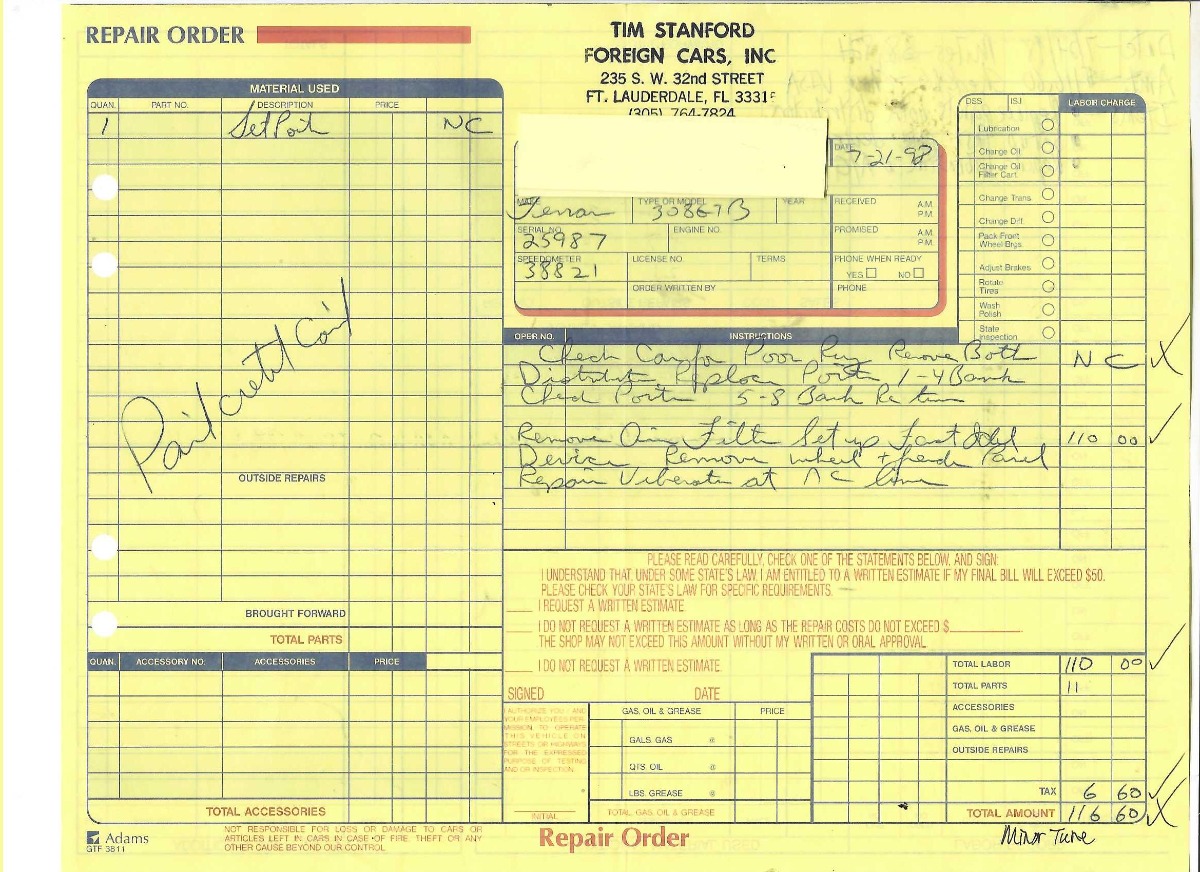 REPAIR ORDER
TIM STANFORD
FOREIGN CARS, INC
235 S. W. 32nd STREET
FT. LAUDERDALE, FL 3331
(305) 764-7824
MATERIAL USED
QUAN. PART NO. DESCRIPTION PRICE
1 Set Point NC
DATE 7-21-98
MAKE TYPE OR MODEL YEAR
Ferrari 308GTB
SERIAL NO. ENGINE NO.
25987
SPEEDOMETER LICENSE NO. TERMS
38821
ORDER WRITTEN BY
RECEIVED A.M. P.M.
PROMISED A.M. P.M.
PHONE WHEN READY
YES NO
PHONE
DSS ISJ LABOR CHARGE
Lubrication
Change Oil
Change Oil Filter Cart.
Change Trans.
Change Diff.
Pack Front Wheel Brgs.
Adjust Brakes
Rotate Tires
Wash Polish
State Inspection
OPER NO. INSTRUCTIONS
Check Car for Poor Run Remove Both NC
Distributor Replace Points 1-4 Bank
Check Points 5-8 Bank Re time
Remove Air Filter Set up Fast Idel 110 00
Device Remove wheel + Panel
Repair Viberation at AC line
Paid credit Card
OUTSIDE REPAIRS
BROUGHT FORWARD
TOTAL PARTS
QUAN. ACCESSORY NO. ACCESSORIES PRICE
TOTAL ACCESSORIES
PLEASE READ CAREFULLY, CHECK ONE OF THE STATEMENTS BELOW, AND SIGN:
I UNDERSTAND THAT, UNDER SOME STATE'S LAW, I AM ENTITLED TO A WRITTEN ESTIMATE IF MY FINAL BILL WILL EXCEED $50.
PLEASE CHECK YOUR STATE'S LAW FOR SPECIFIC REQUIREMENTS.
I REQUEST A WRITTEN ESTIMATE
I DO NOT REQUEST A WRITTEN ESTIMATE AS LONG AS THE REPAIR COSTS DO NOT EXCEED $
THE SHOP MAY NOT EXCEED THIS AMOUNT WITHOUT MY WRITTEN OR ORAL APPROVAL.
I DO NOT REQUEST A WRITTEN ESTIMATE.
SIGNED DATE
I AUTHORIZE YOU AND
YOUR EMPLOYEES PER-
MISSION TO OPERATE
THIS VEHICLE ON
STREETS OR HIGHWAYS
FOR THE EXPRESSED
PURPOSE OF TESTING
AND/OR INSPECTION.
INITIAL
GAS, OIL & GREASE PRICE
GALS. GAS @
QTS. OIL @
LBS. GREASE @
TOTAL GAS, OIL & GREASE
TOTAL LABOR 110 00
TOTAL PARTS 11
ACCESSORIES
GAS, OIL & GREASE
OUTSIDE REPAIRS
TAX 6 60
TOTAL AMOUNT 116 60
Minor Tune
Adams
GTF 3811
NOT RESPONSIBLE FOR LOSS OR DAMAGE TO CARS OR
ARTICLES LEFT IN CARS IN CASE OF FIRE, THEFT OR ANY
OTHER CAUSE BEYOND OUR CONTROL.
Repair Order